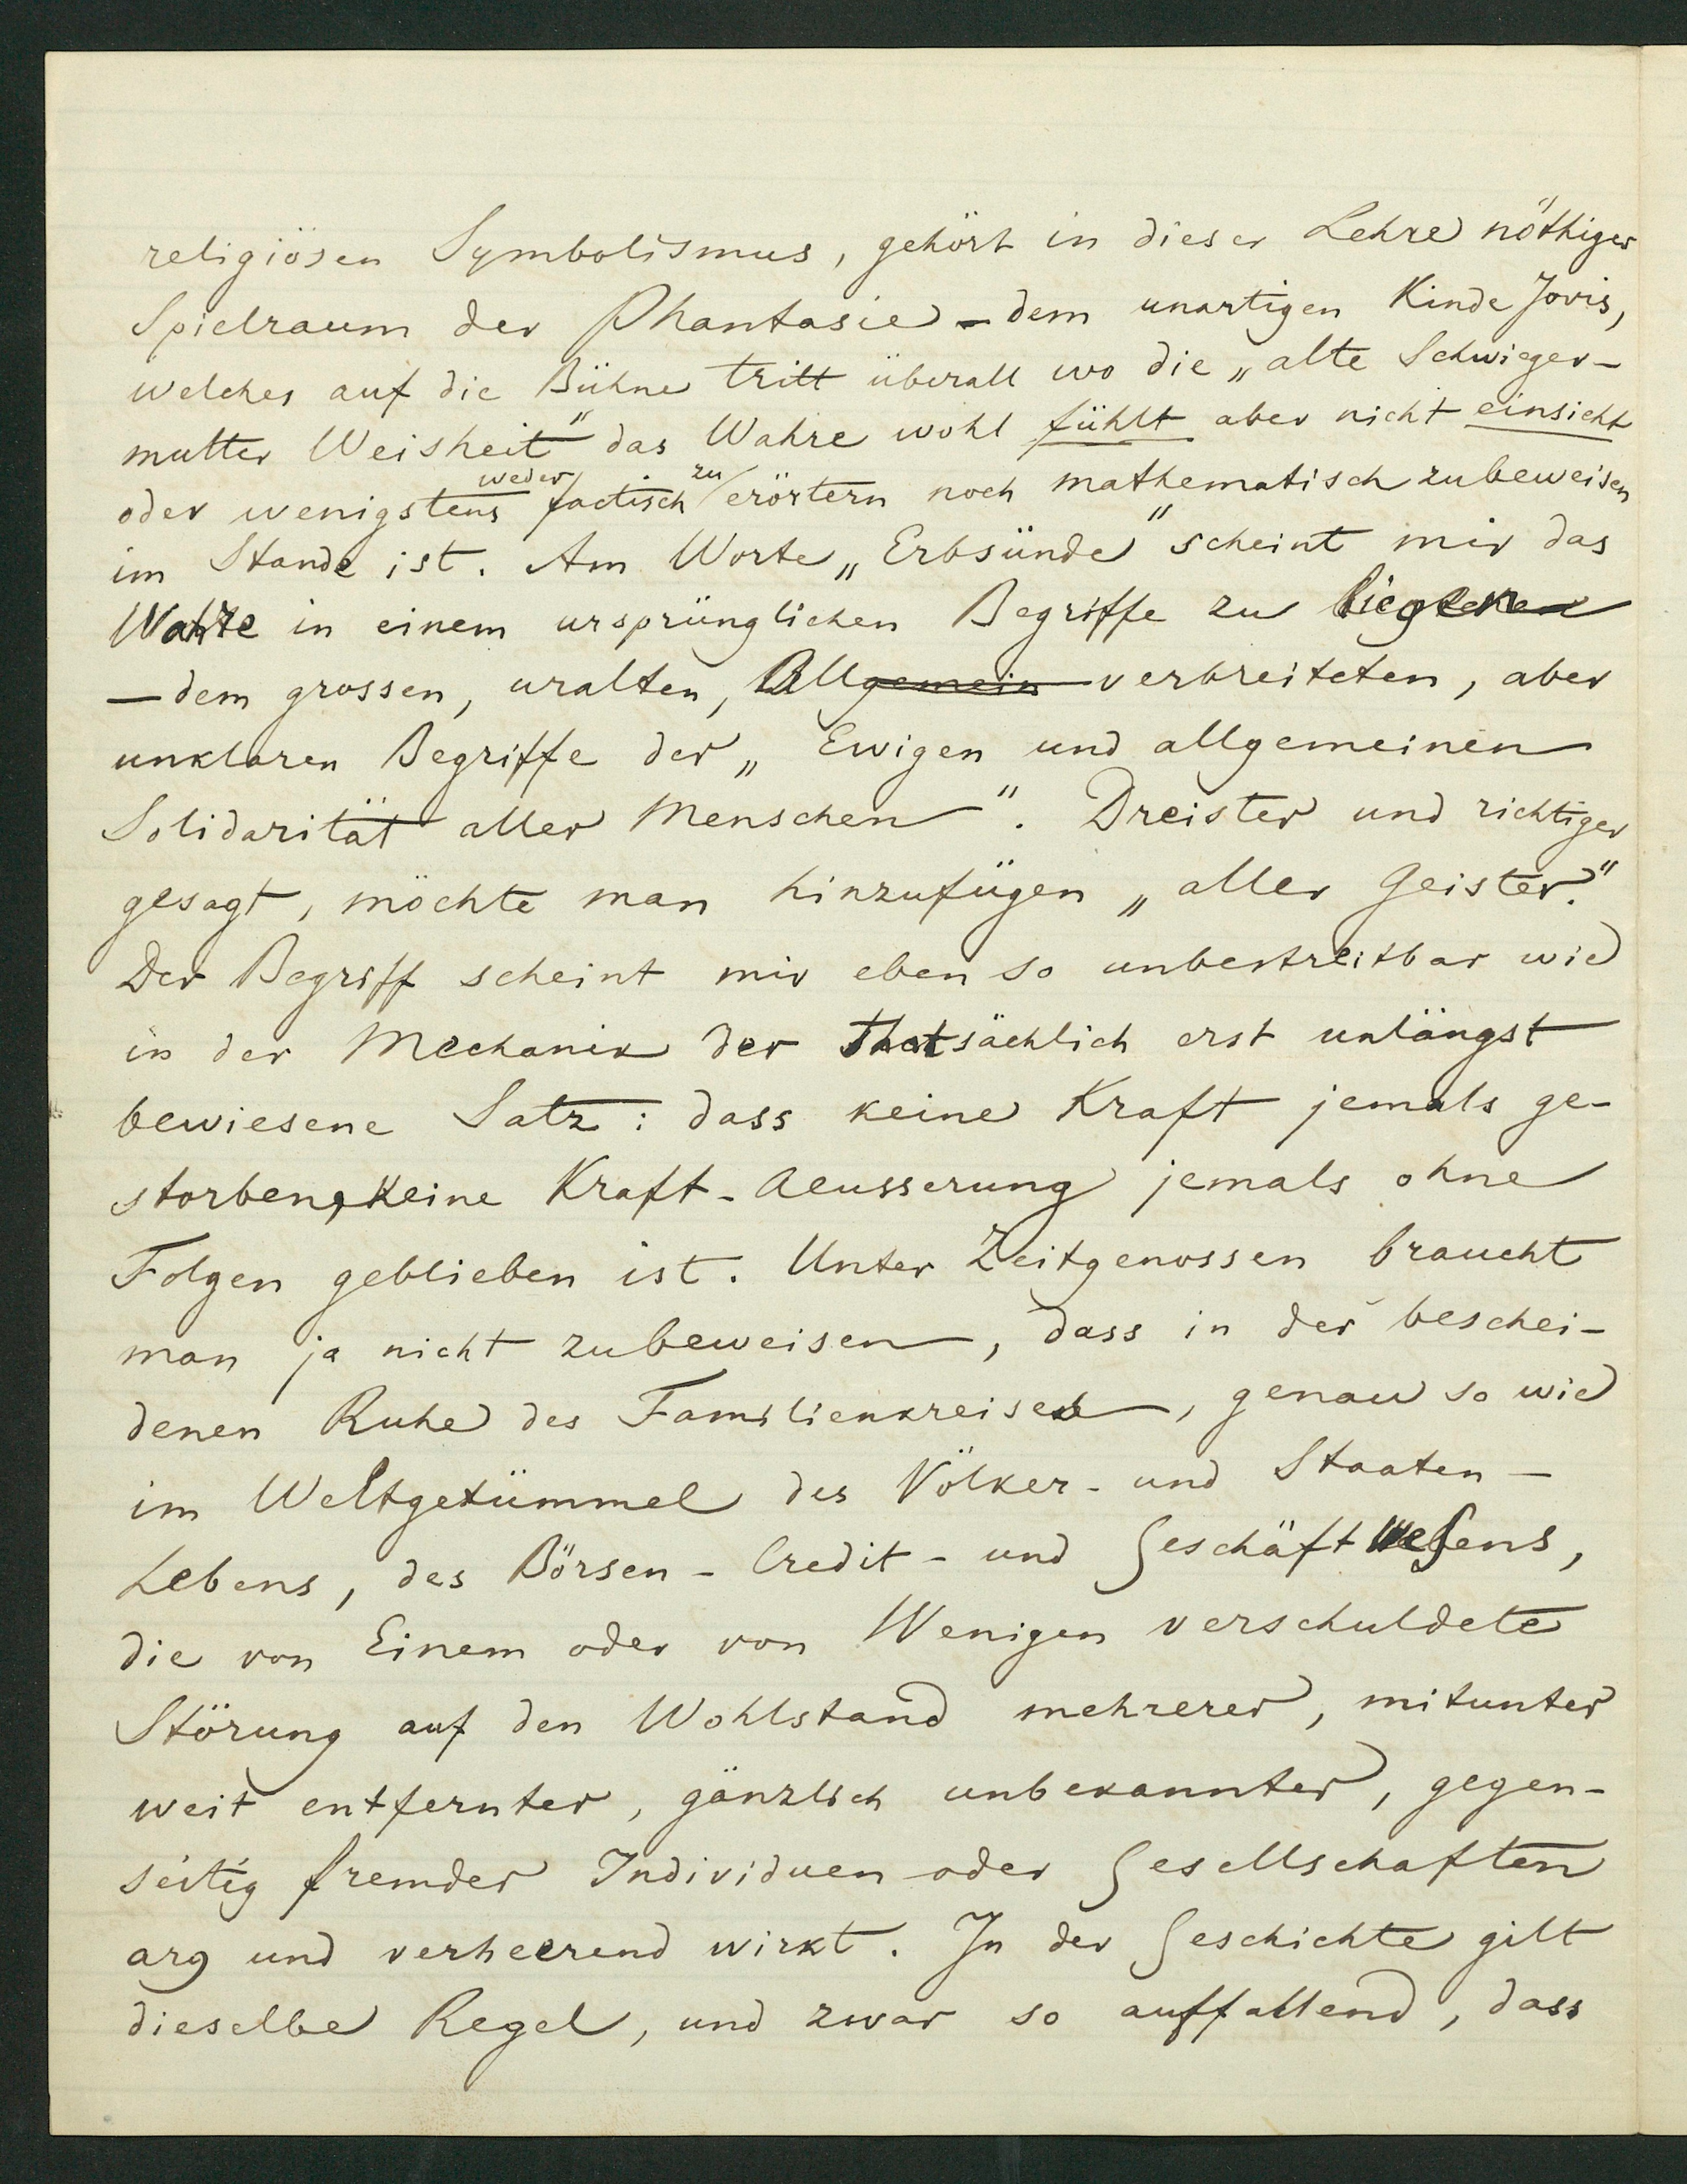 religiösen Symbolismus, gehört in dieser Lehre nöthiger
Spielraum der Phantasie – dem unartigen Kinde Jovis,
welches auf die Bühne tritt überall wo die „alte Schwieger-
mutter Weisheit" das Wahre wohl fühlt aber nicht einsieht
oder wenigstens weder factisch zu erörtern noch mathematisch zu beweisen
im Stande ist. Am Worte „Erbsünde" scheint mir das
Wahre in einem ursprünglichen Begriffe zu liegen
— dem grossen, uralten, Allgemein verbreiteten, aber
unklaren Begriffe der „Ewigen und allgemeinen
Solidarität aller Menschen". Dreister und richtiger
gesagt, möchte man hinzufügen „aller Geister."
Der Begriff scheint mir eben so unbestreitbar wie
in der Mechanik der thatsächlich erst unlängst
bewiesene Satz: dass keine Kraft jemals ge-
storben, keine Kraft-Aeusserung jemals ohne
Folgen geblieben ist. Unter Zeitgenossen braucht
man ja nicht zu beweisen, dass in der beschei-
denen Ruhe des Familienkreises, genau so wie
im Weltgetümmel des Völker- und Staaten-
Lebens, des Börsen- Credit- und Geschäftwesens,
die von Einem oder von Wenigen verschuldete
Störung auf den Wohlstand mehrerer, mitunter
weit entfernter, gänzlich unbekannter, gegen-
seitig fremder Individuen oder Gesellschaften
arg und verheerend wirkt. In der Geschichte gilt
dieselbe Regel, und zwar so auffallend, dass